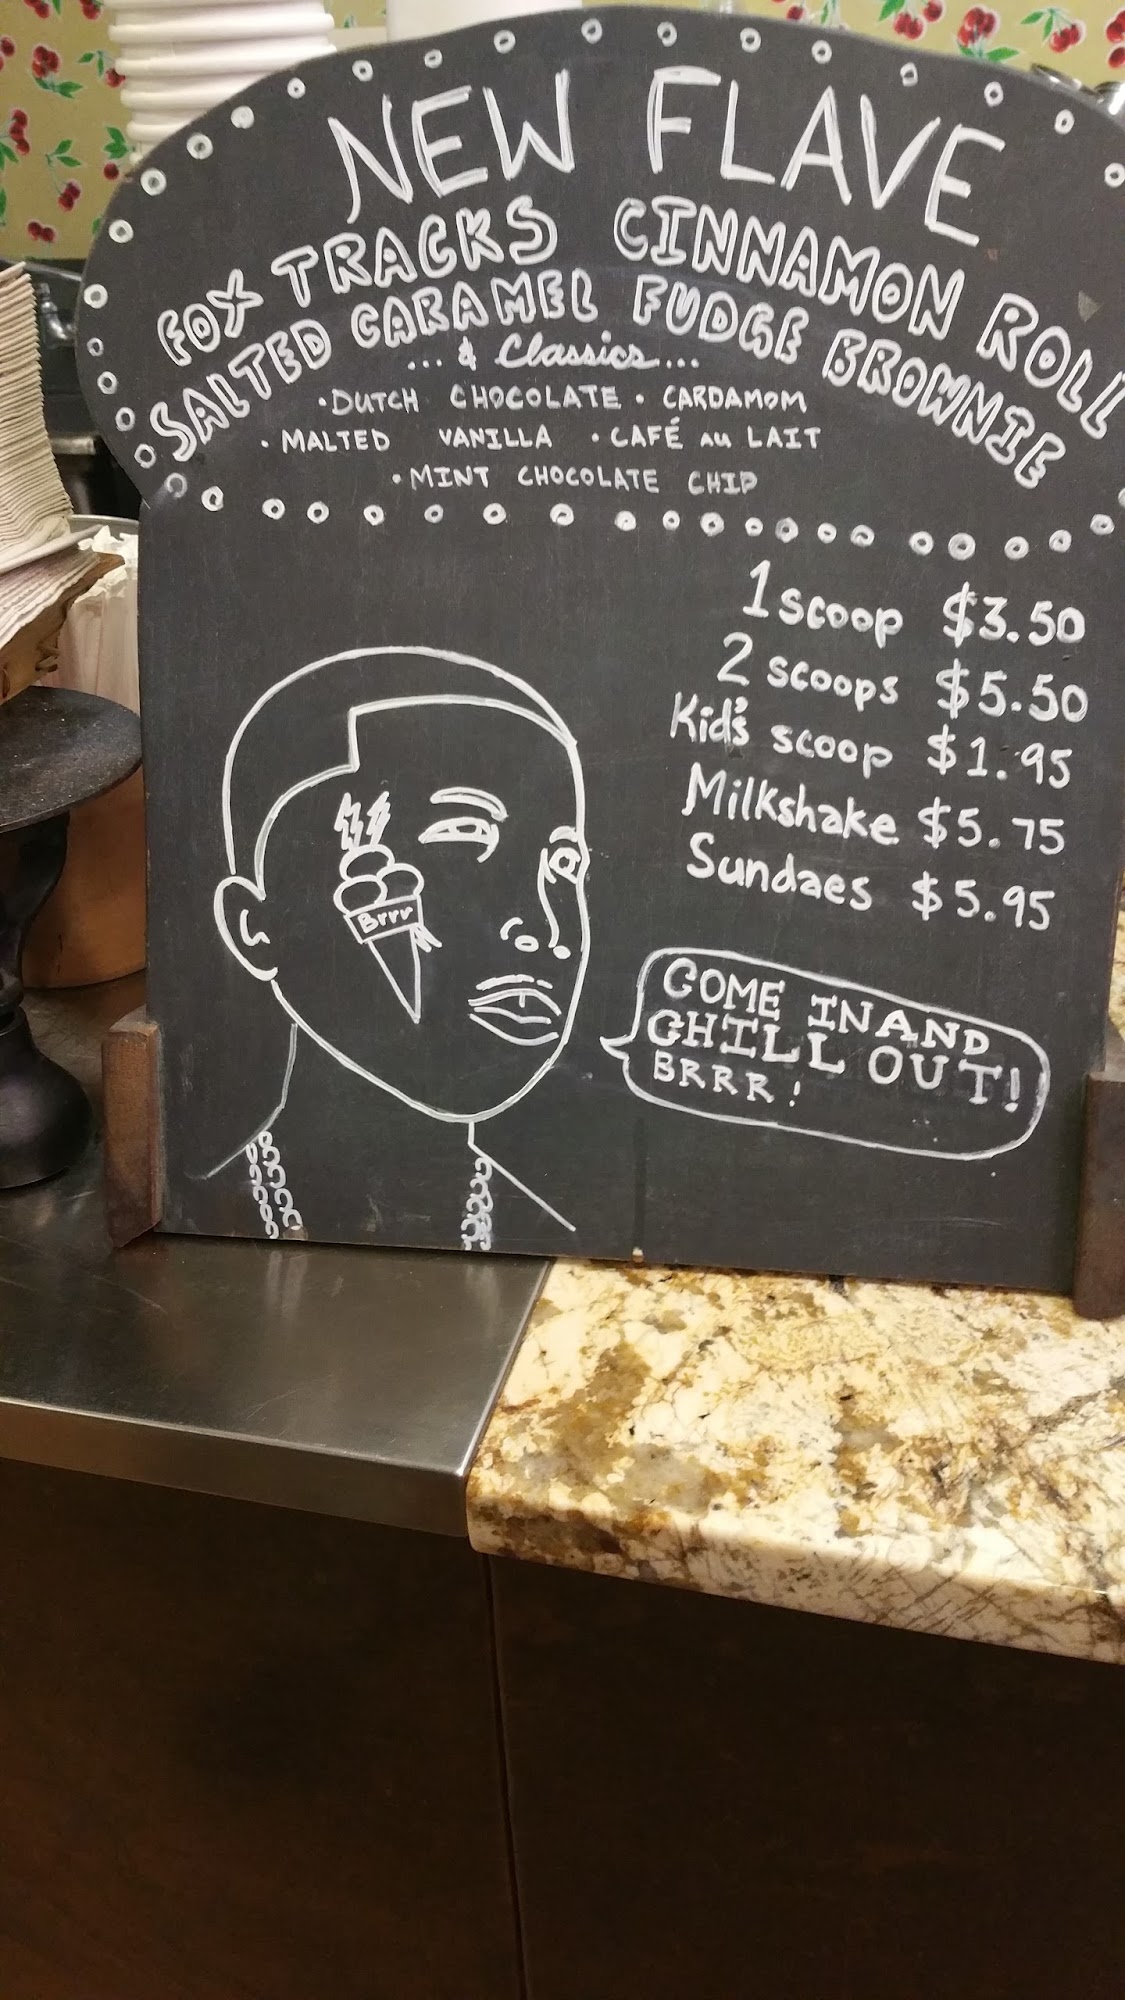 NEW FLAVE
FOX TRACKS CINNAMON ROLL
SALTED CARAMEL FUDGE BROWNIE
... & Classics...
• DUTCH CHOCOLATE • CARDAMOM
• MALTED VANILLA • CAFÉ AU LAIT
• MINT CHOCOLATE CHIP
1 scoop $3.50
2 scoops $5.50
Kid's scoop $1.95
Milkshake $5.75
Sundaes $5.95
Brrr
COME IN AND
CHILL OUT!
BRRR!